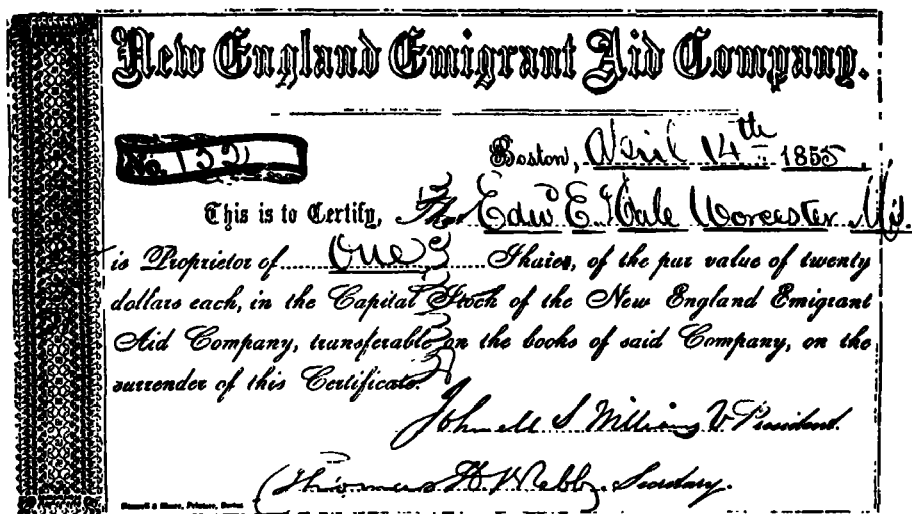 New England Emigrant Aid Company.
No. 155
Boston, April 14th 1855.
This is to Certify, That Edwd E. Hale Worcester Ms.
is Proprietor of One Shares, of the par value of twenty
dollars each, in the Capital Stock of the New England Emigrant
Aid Company, transferable on the books of said Company, on the
surrender of this Certificate.
S Williams V. President.
Thomas H. Webb, Secretary.
Printers, Boston